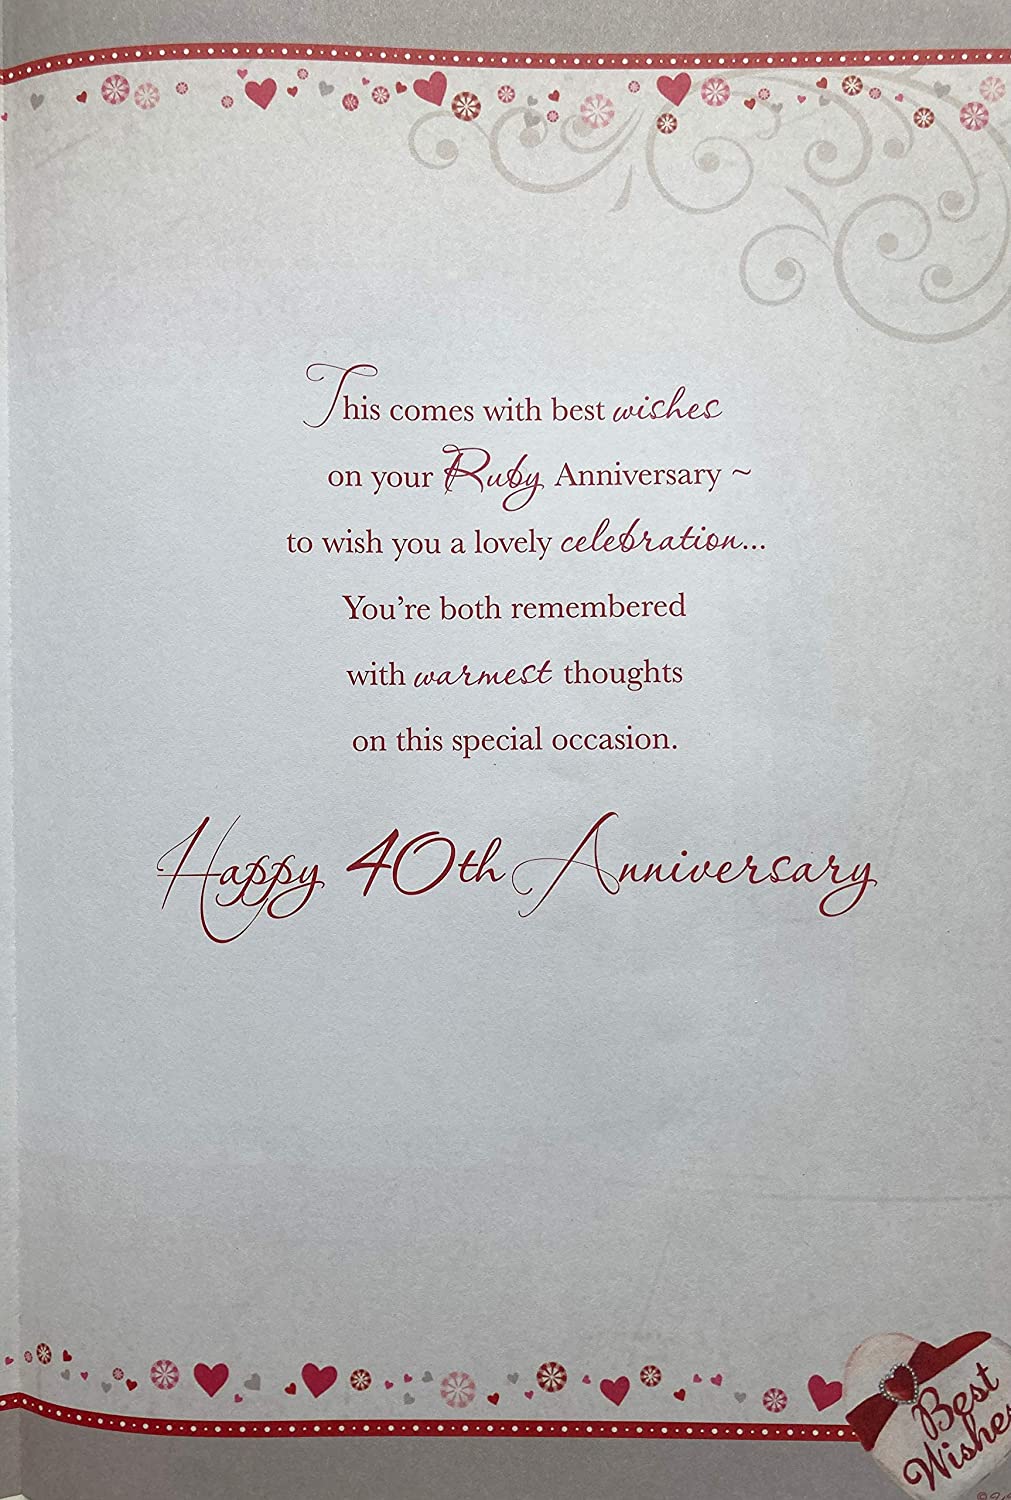 This comes with best wishes
on your Ruby Anniversary ~
to wish you a lovely celebration...
You're both remembered
with warmest thoughts
on this special occasion.
Happy 40th Anniversary
Best
Wishes